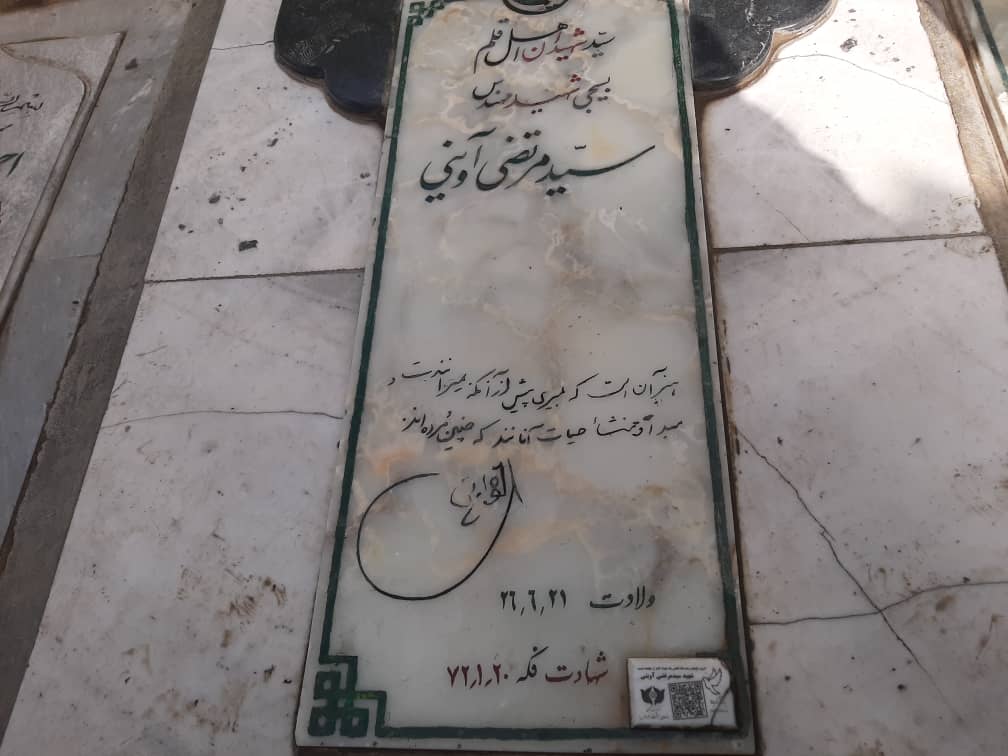 سیّد شهیدان اهل قلم
بسیجی شهید مهندس
سیّد مرتضی آوینی
هنر آن است که بمیری پیش از آنکه بمیرانندت و
مبدأ و منشأ حیات آنانند که چنین مُرده‌اند.
ولادت ۲۶٫۶٫۲۱
شهادت فکه ۷۲٫۱٫۲۰
شهید سیدمرتضی آوینی